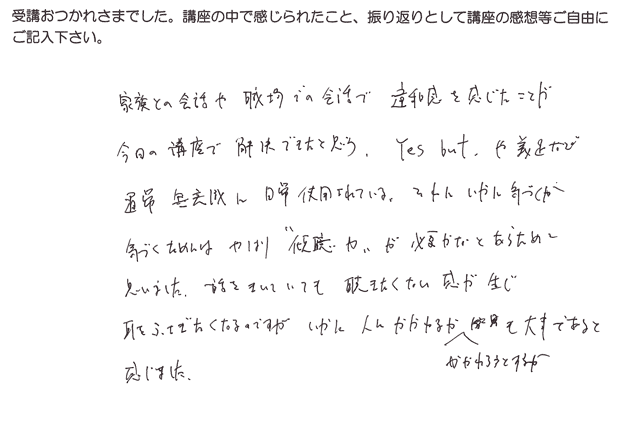 受講おつかれさまでした。講座の中で感じられたこと、振り返りとして講座の感想等ご自由に
ご記入下さい。
家族との会話や 職場での会話で 違和感を感じたことが
今日の講座で 解決できたと思う。 Yes but. や 義足など
通常 無意識に 日常 使用されている。 それに いかに 気づくか
気づくためには やはり "傾聴力" が 必要かなと あらためて
思いました。 話をきいていても 聴きたくない 感が 生じ
耳をふさぎたくなるのですが いかに 人に かかわるか も 大事であると
かかわろうとするか
感じました。